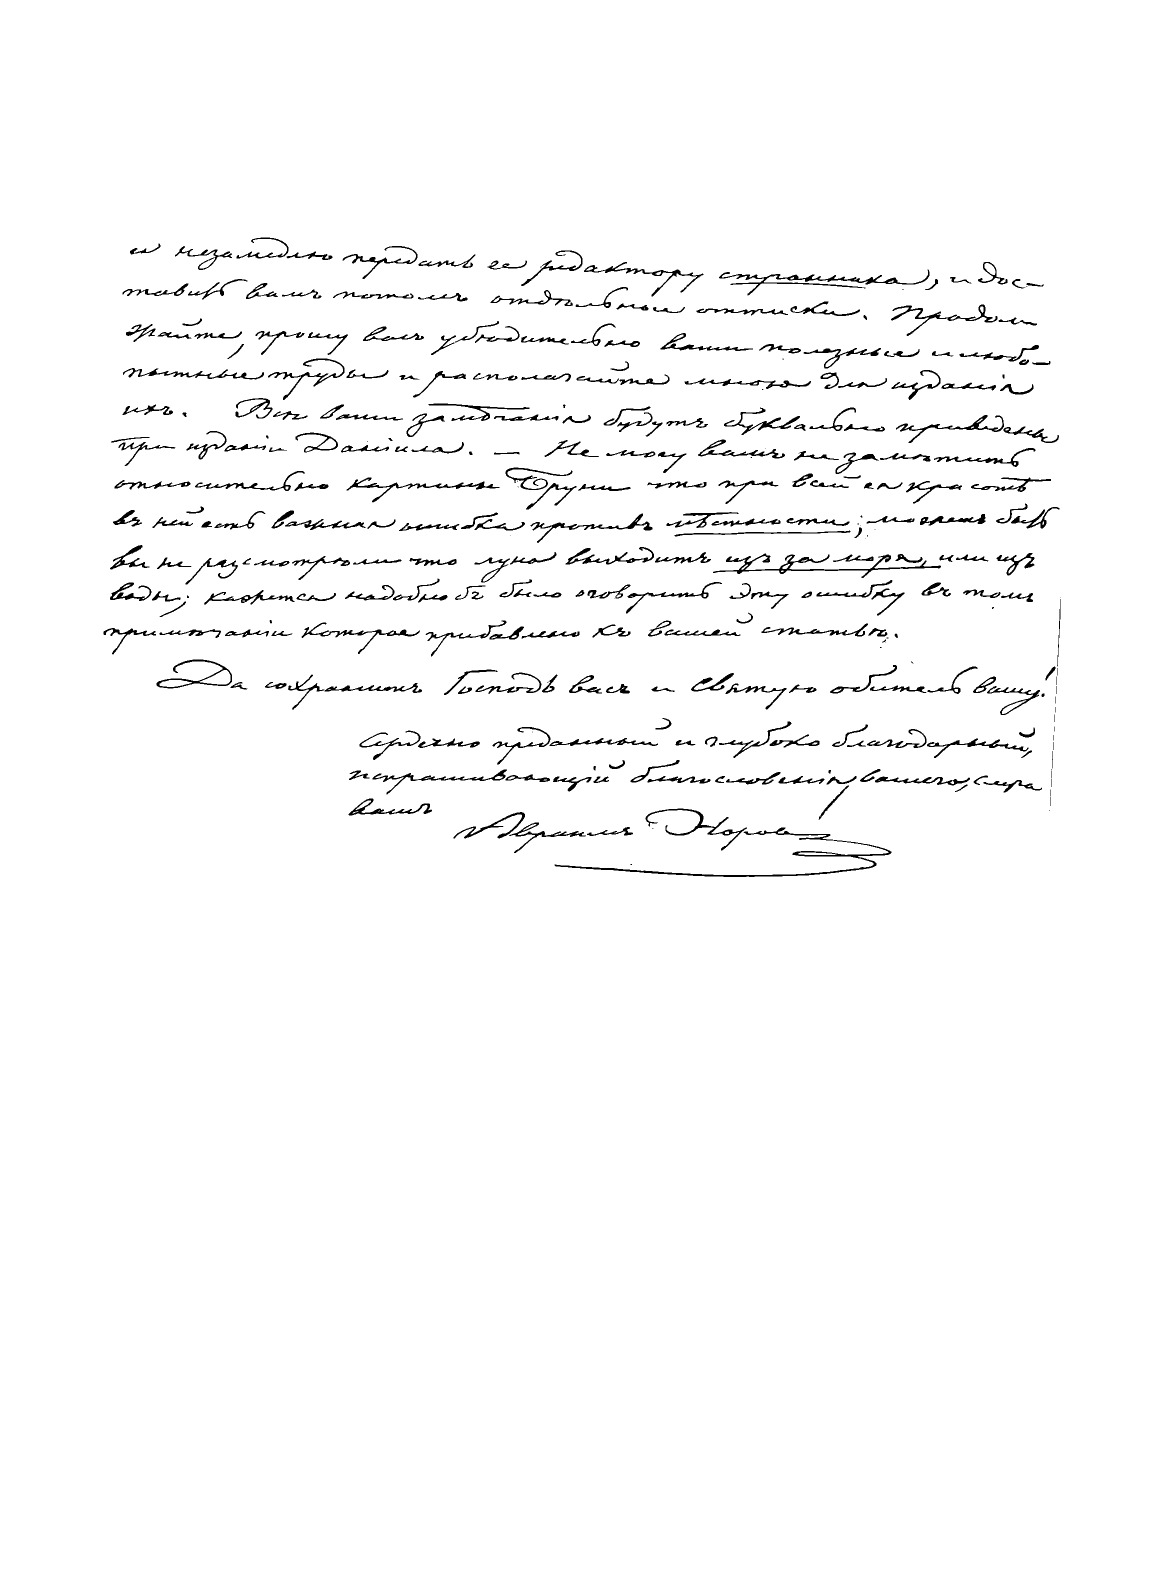 и незамедлю передать ее редактору странника, и дос-
тавить вамъ потомъ отдѣльные оттиски. Продол
жайте, прошу васъ убѣдительно ваши полезные и любо-
пытные труды и располагайте мною для изданія
ихъ. Всѣ ваши замѣчанія будутъ буквально приведены
при изданіи Даніила. — Не могу вамъ не замѣтить
относительно картины Бруни что при всей ея красотѣ
въ ней есть важная ошибка противъ мѣстности; можетъ быть
вы не разсмотрѣли что луна выходитъ изъ за моря, или изъ
воды; кажется надобно бъ было оговорить эту ошибку въ томъ
примѣчаніи которое прибавлено къ вашей статьѣ.
Да сохранитъ Господь васъ и Святую обитель вашу!
Сердечно преданный и глубоко благодарный,
испрашивающій благословенія вашего,
вамъ
Авраамъ Норовъ